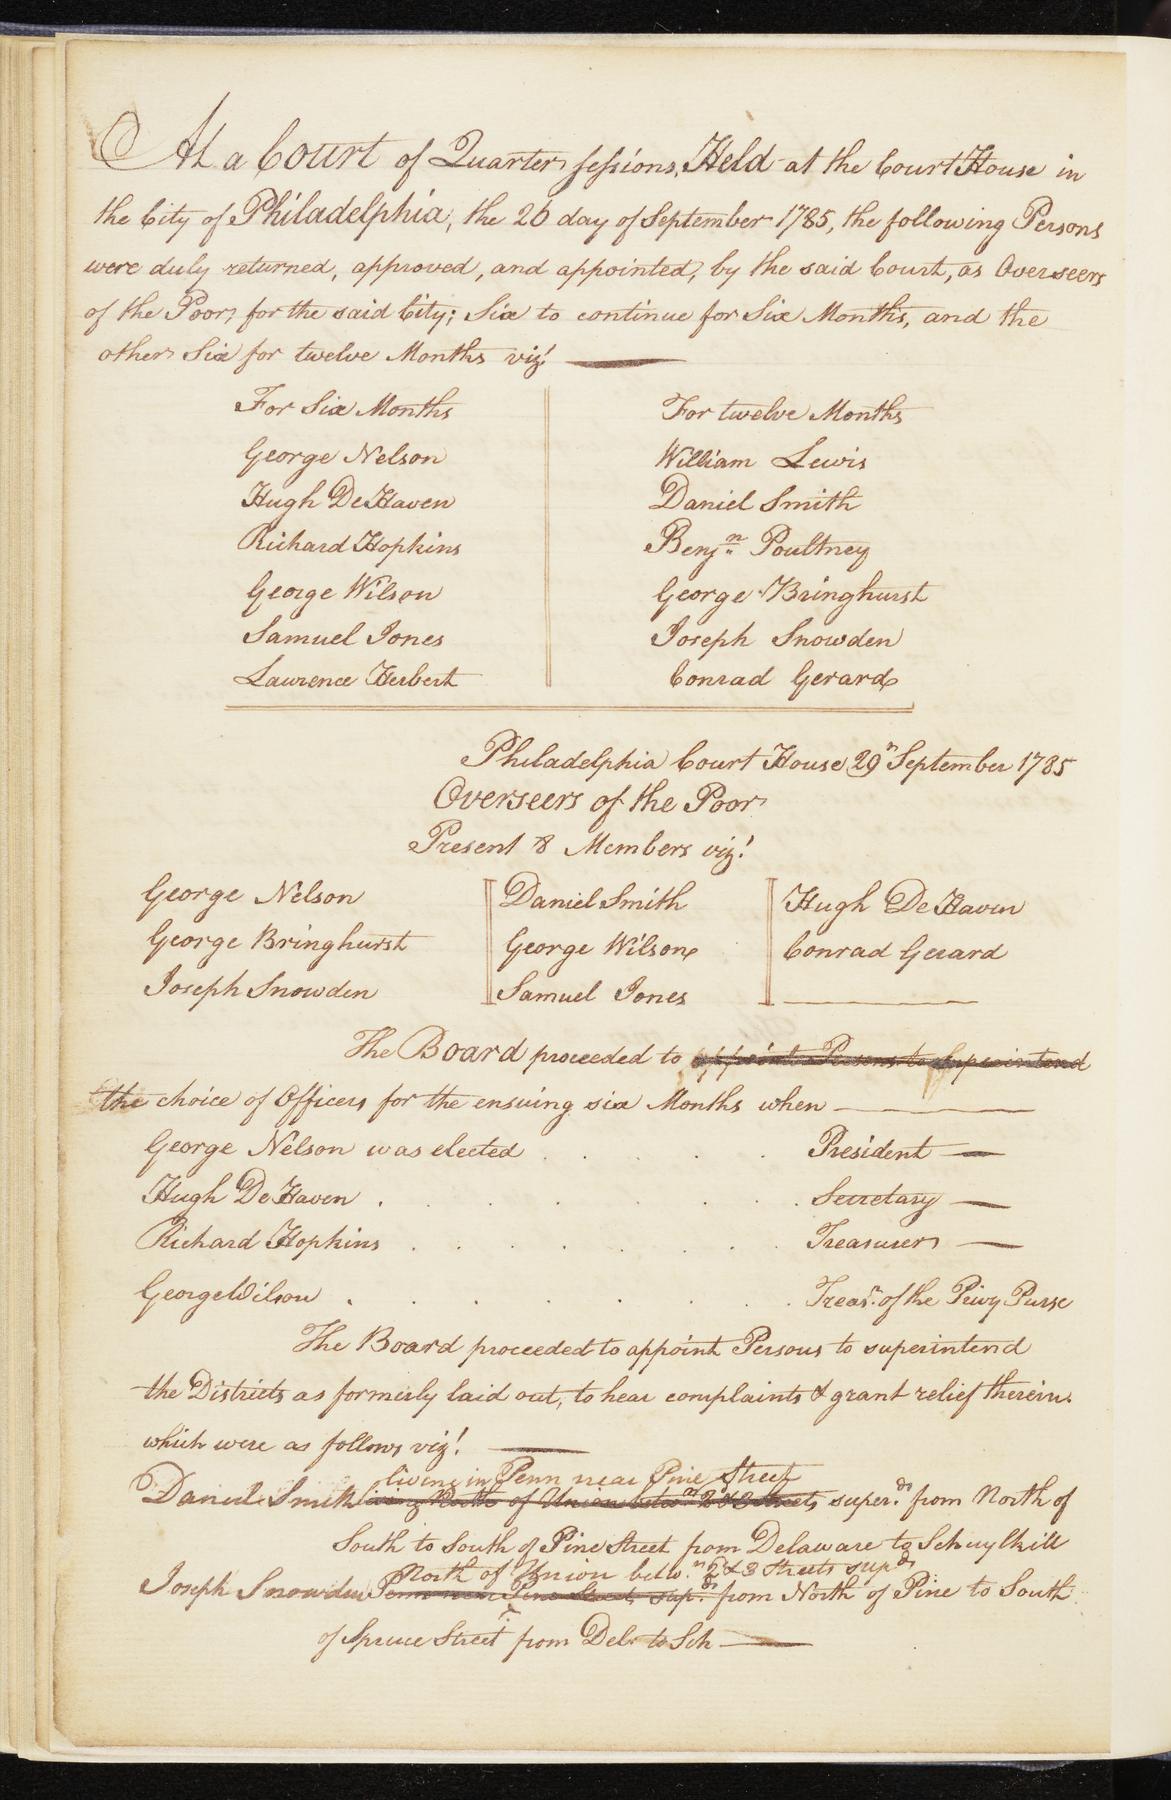 At a Court of Quarter sessions, Held at the Court House in
the City of Philadelphia, the 26 day of September 1785, the following Persons
were duly returned, approved, and appointed, by the said Court, as Overseers
of the Poor, for the said City; Six to continue for Six Months, and the
other Six for twelve Months viz.t
For Six Months
George Nelson
Hugh DeHaven
Richard Hopkins
George Wilson
Samuel Jones
Lawrence Herbert
For twelve Months
William Lewis
Daniel Smith
Benjn. Poultney
George Bringhurst
Joseph Snowden
Conrad Gerard
Philadelphia Court House 29th September 1785
Overseers of the Poor
Present 8 Members viz.t
George Nelson
George Bringhurst
Joseph Snowden
Daniel Smith
George Wilson
Samuel Jones
Hugh DeHaven
Conrad Gerard
The Board proceeded to appoint Persons to Superintend
the choice of Officers for the ensuing six Months when
George Nelson was elected . . . . President
Hugh DeHaven . . . . . Secretary
Richard Hopkins . . . . . . . Treasurer
George Wilson . . . . . . . Treasr. of the Privy Purse
The Board proceeded to appoint Persons to superintend
the Districts as formerly laid out, to hear complaints & grant relief therein.
which were as follows viz.t
living in Penn near Pine Street
Daniel Smith living North of Union betwn 2 & 3 Streets super.ds from North of
South to South of Pine Street from Delaware to Schuylkill
North of Union betw.n 2 & 3 Streets sup.ds
Joseph Snowden Penn near Pine Street, sup.ds from North of Pine to South
of Spruce Street from Del.r to Sch